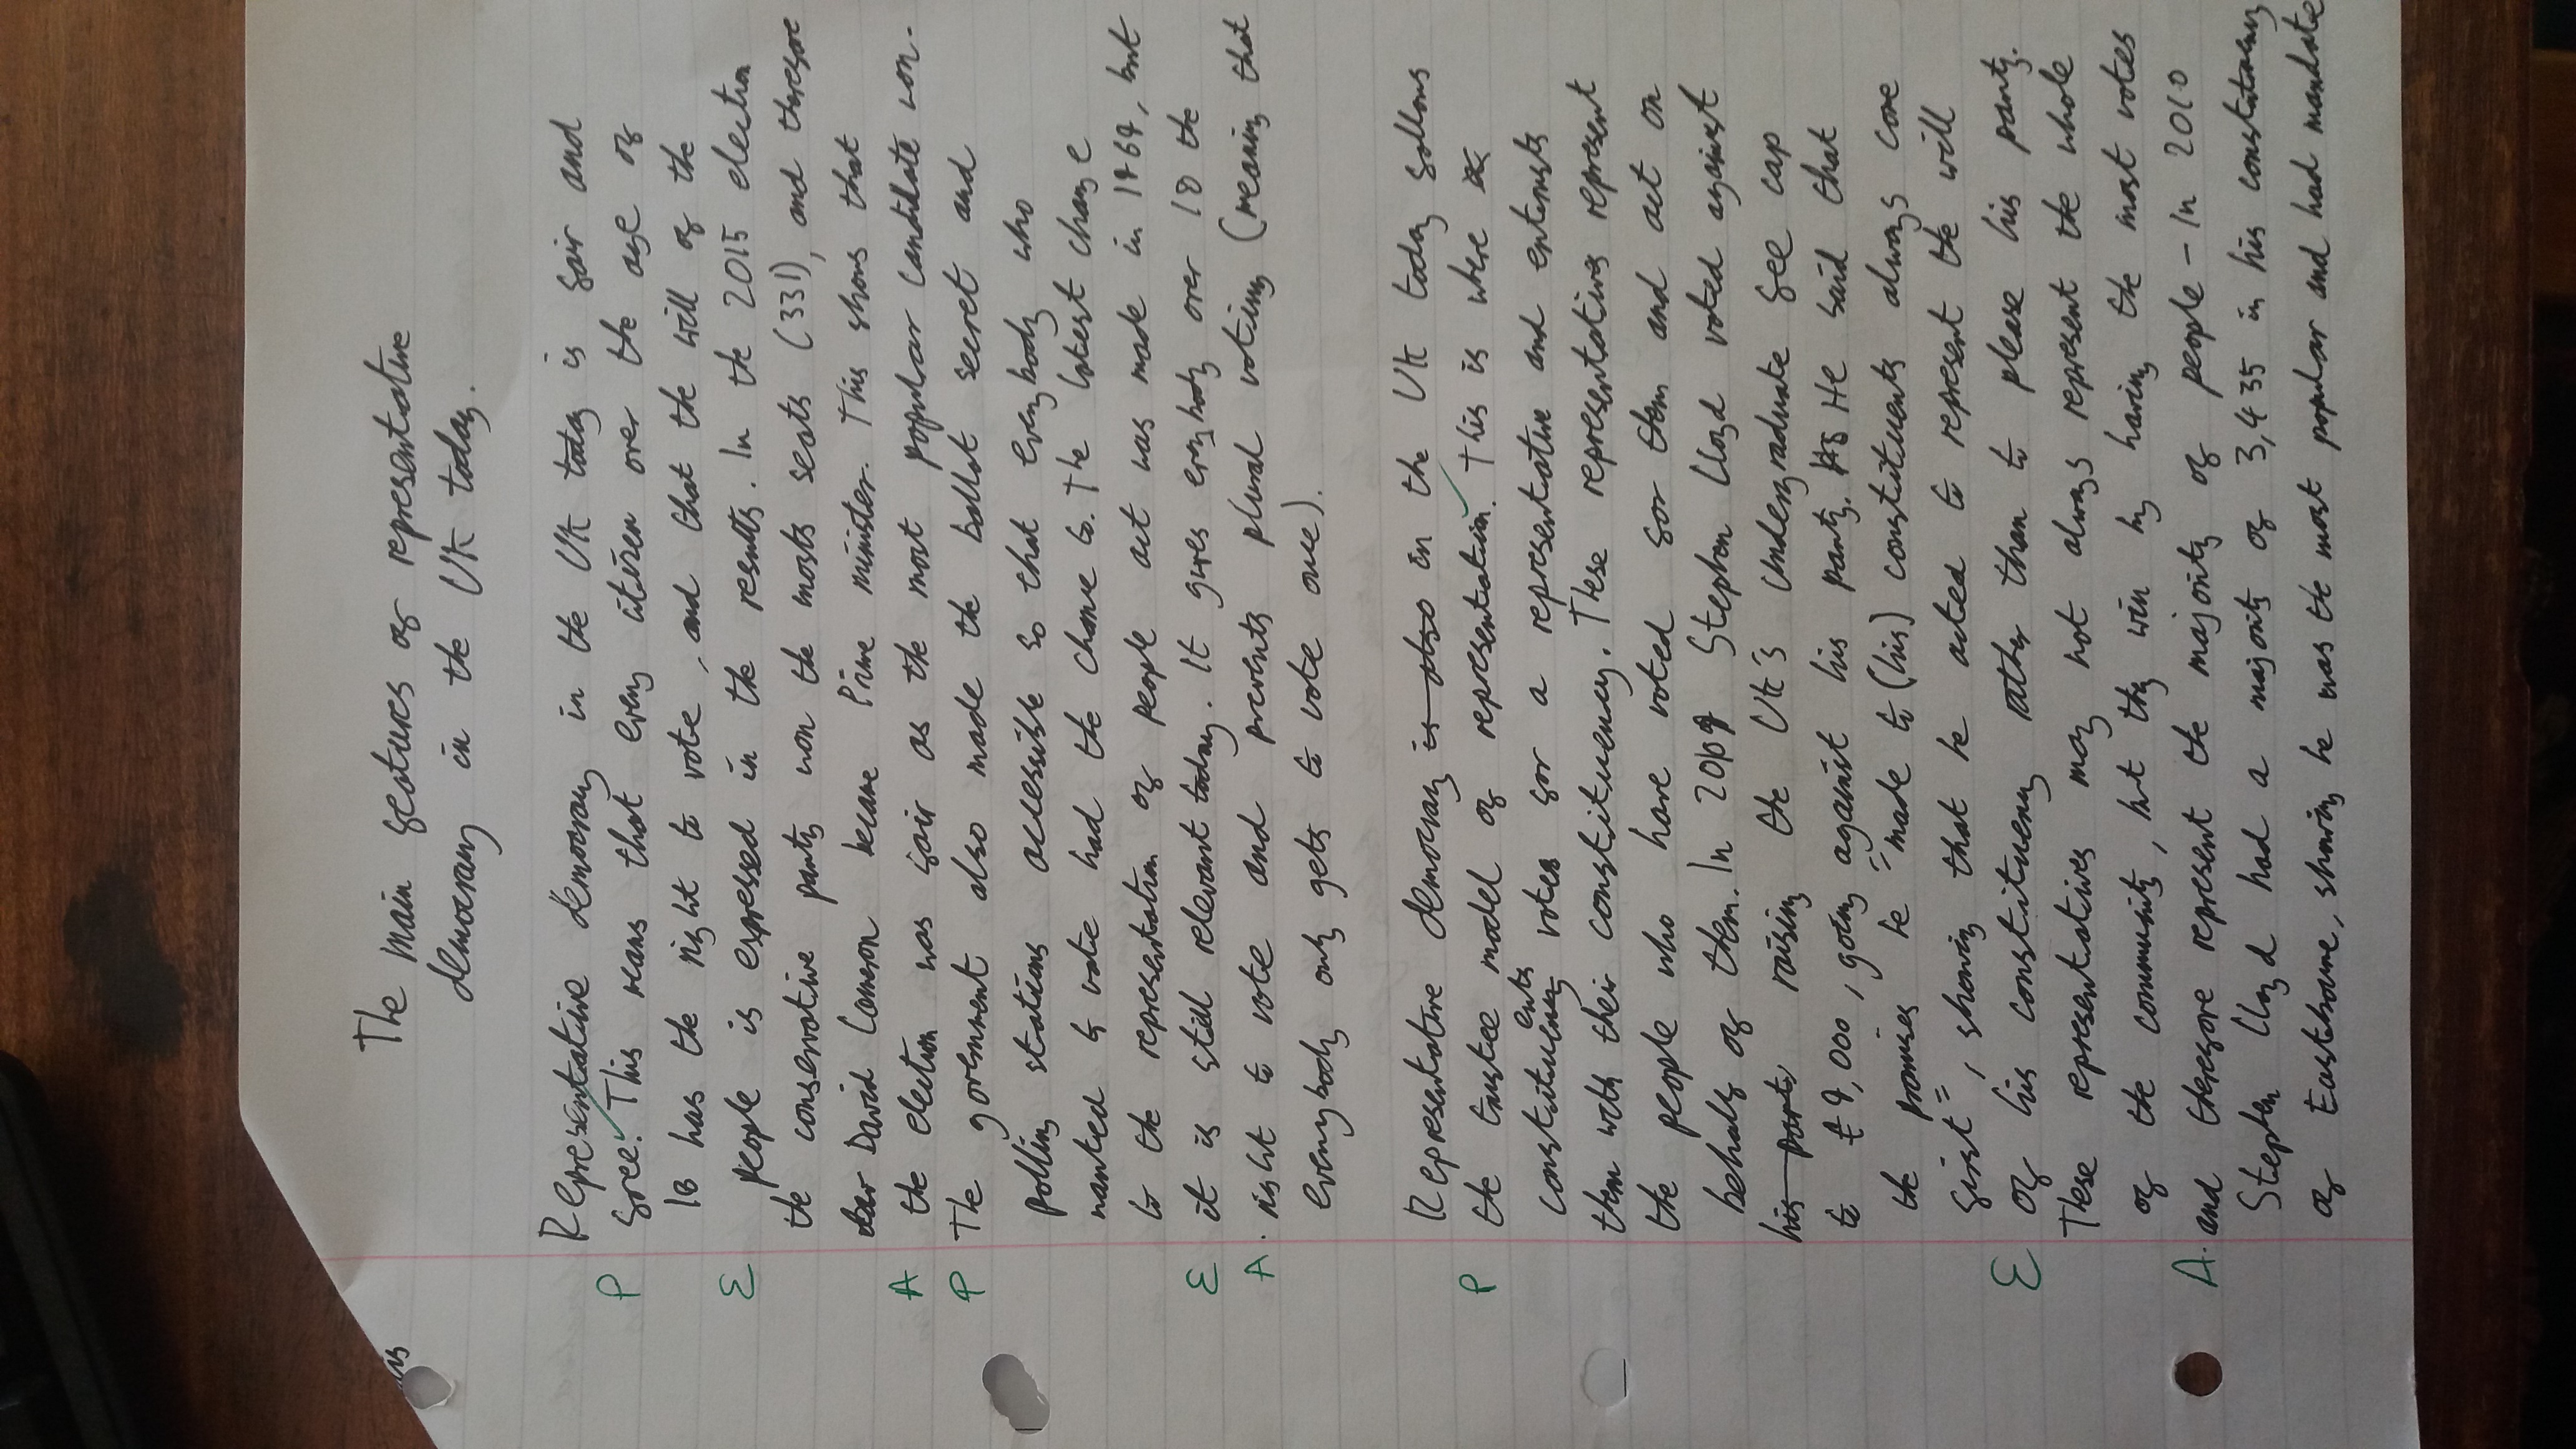 The main features of representative
democracy in the UK today.
Representative democracy in the UK today is fair and
P free. This means that every citizen over the age of
18 has the right to vote, and that the will of the
E people is expressed in the results. In the 2015 election
the conservative party won the mosts seats (331), and therefore
David Cameron became Prime minister. This shows that
A the election was fair as the most popular candidate won.
P The government also made the ballot secret and
polling stations accessible so that everybody who
wanted to vote had the chance to. The latest change
to the representation of people act was made in 1969, but
E it is still relevant today. It gives evrybody over 18 the
A. right to vote and prevents plural voting (meaning that
everybody only gets to vote once).
Representative democracy is also in the UK today follows
P the trustee model of representation. This is where
constituents votes for a representative and entrusts
them with their constituency. These representatives represent
the people who have voted for them and act on
behalf of them. In 2010 Stephen Lloyd voted against
his party raising the UK's undergraduate fee cap
to £9,000, going against his party. He said that
the promises he "made to (his) constituents always come
first", showing that he acted to represent the will
E of his constituency rather than to please his party.
These representatives may not always represent the whole
of the community, but they win by having the most votes
A. and therefore represent the majority of people - In 2010
Stephen Lloyd had a majority of 3,435 in his constituency
of Eastbourne, showing he was the most popular and had mandate